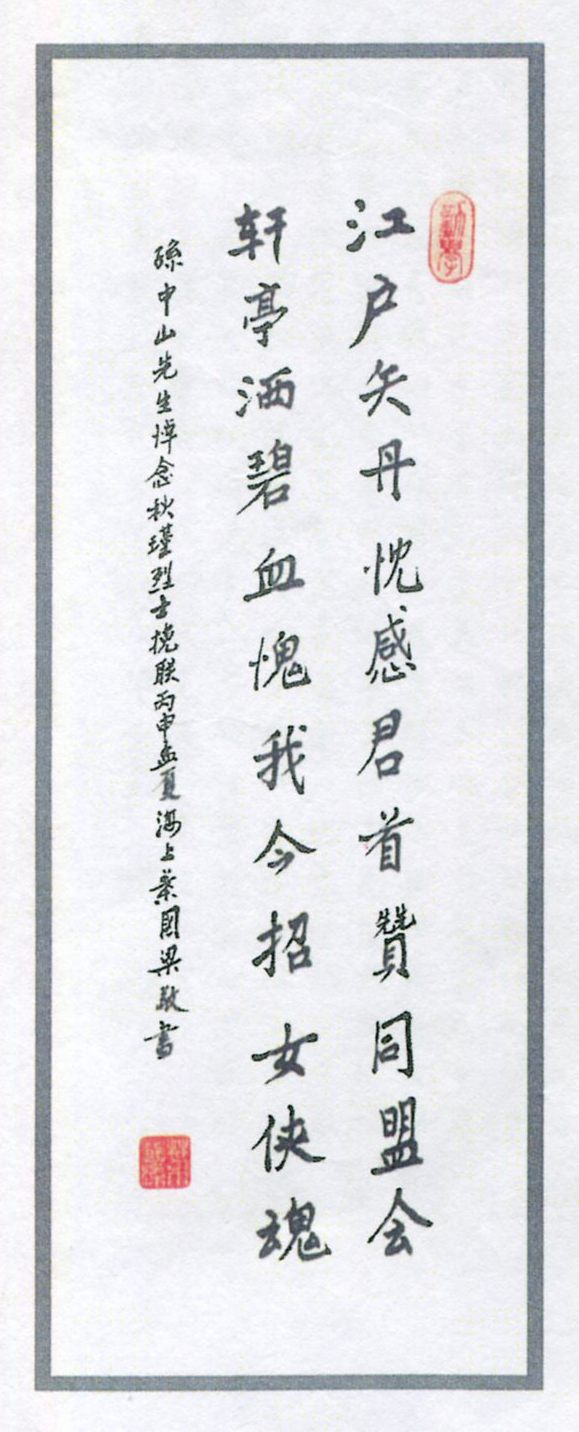 江户矢丹忱感君首贊同盟会
轩亭洒碧血愧我今招女侠魂
孫中山先生悼念秋瑾烈士挽联丙申孟夏海上葉国梁敬書